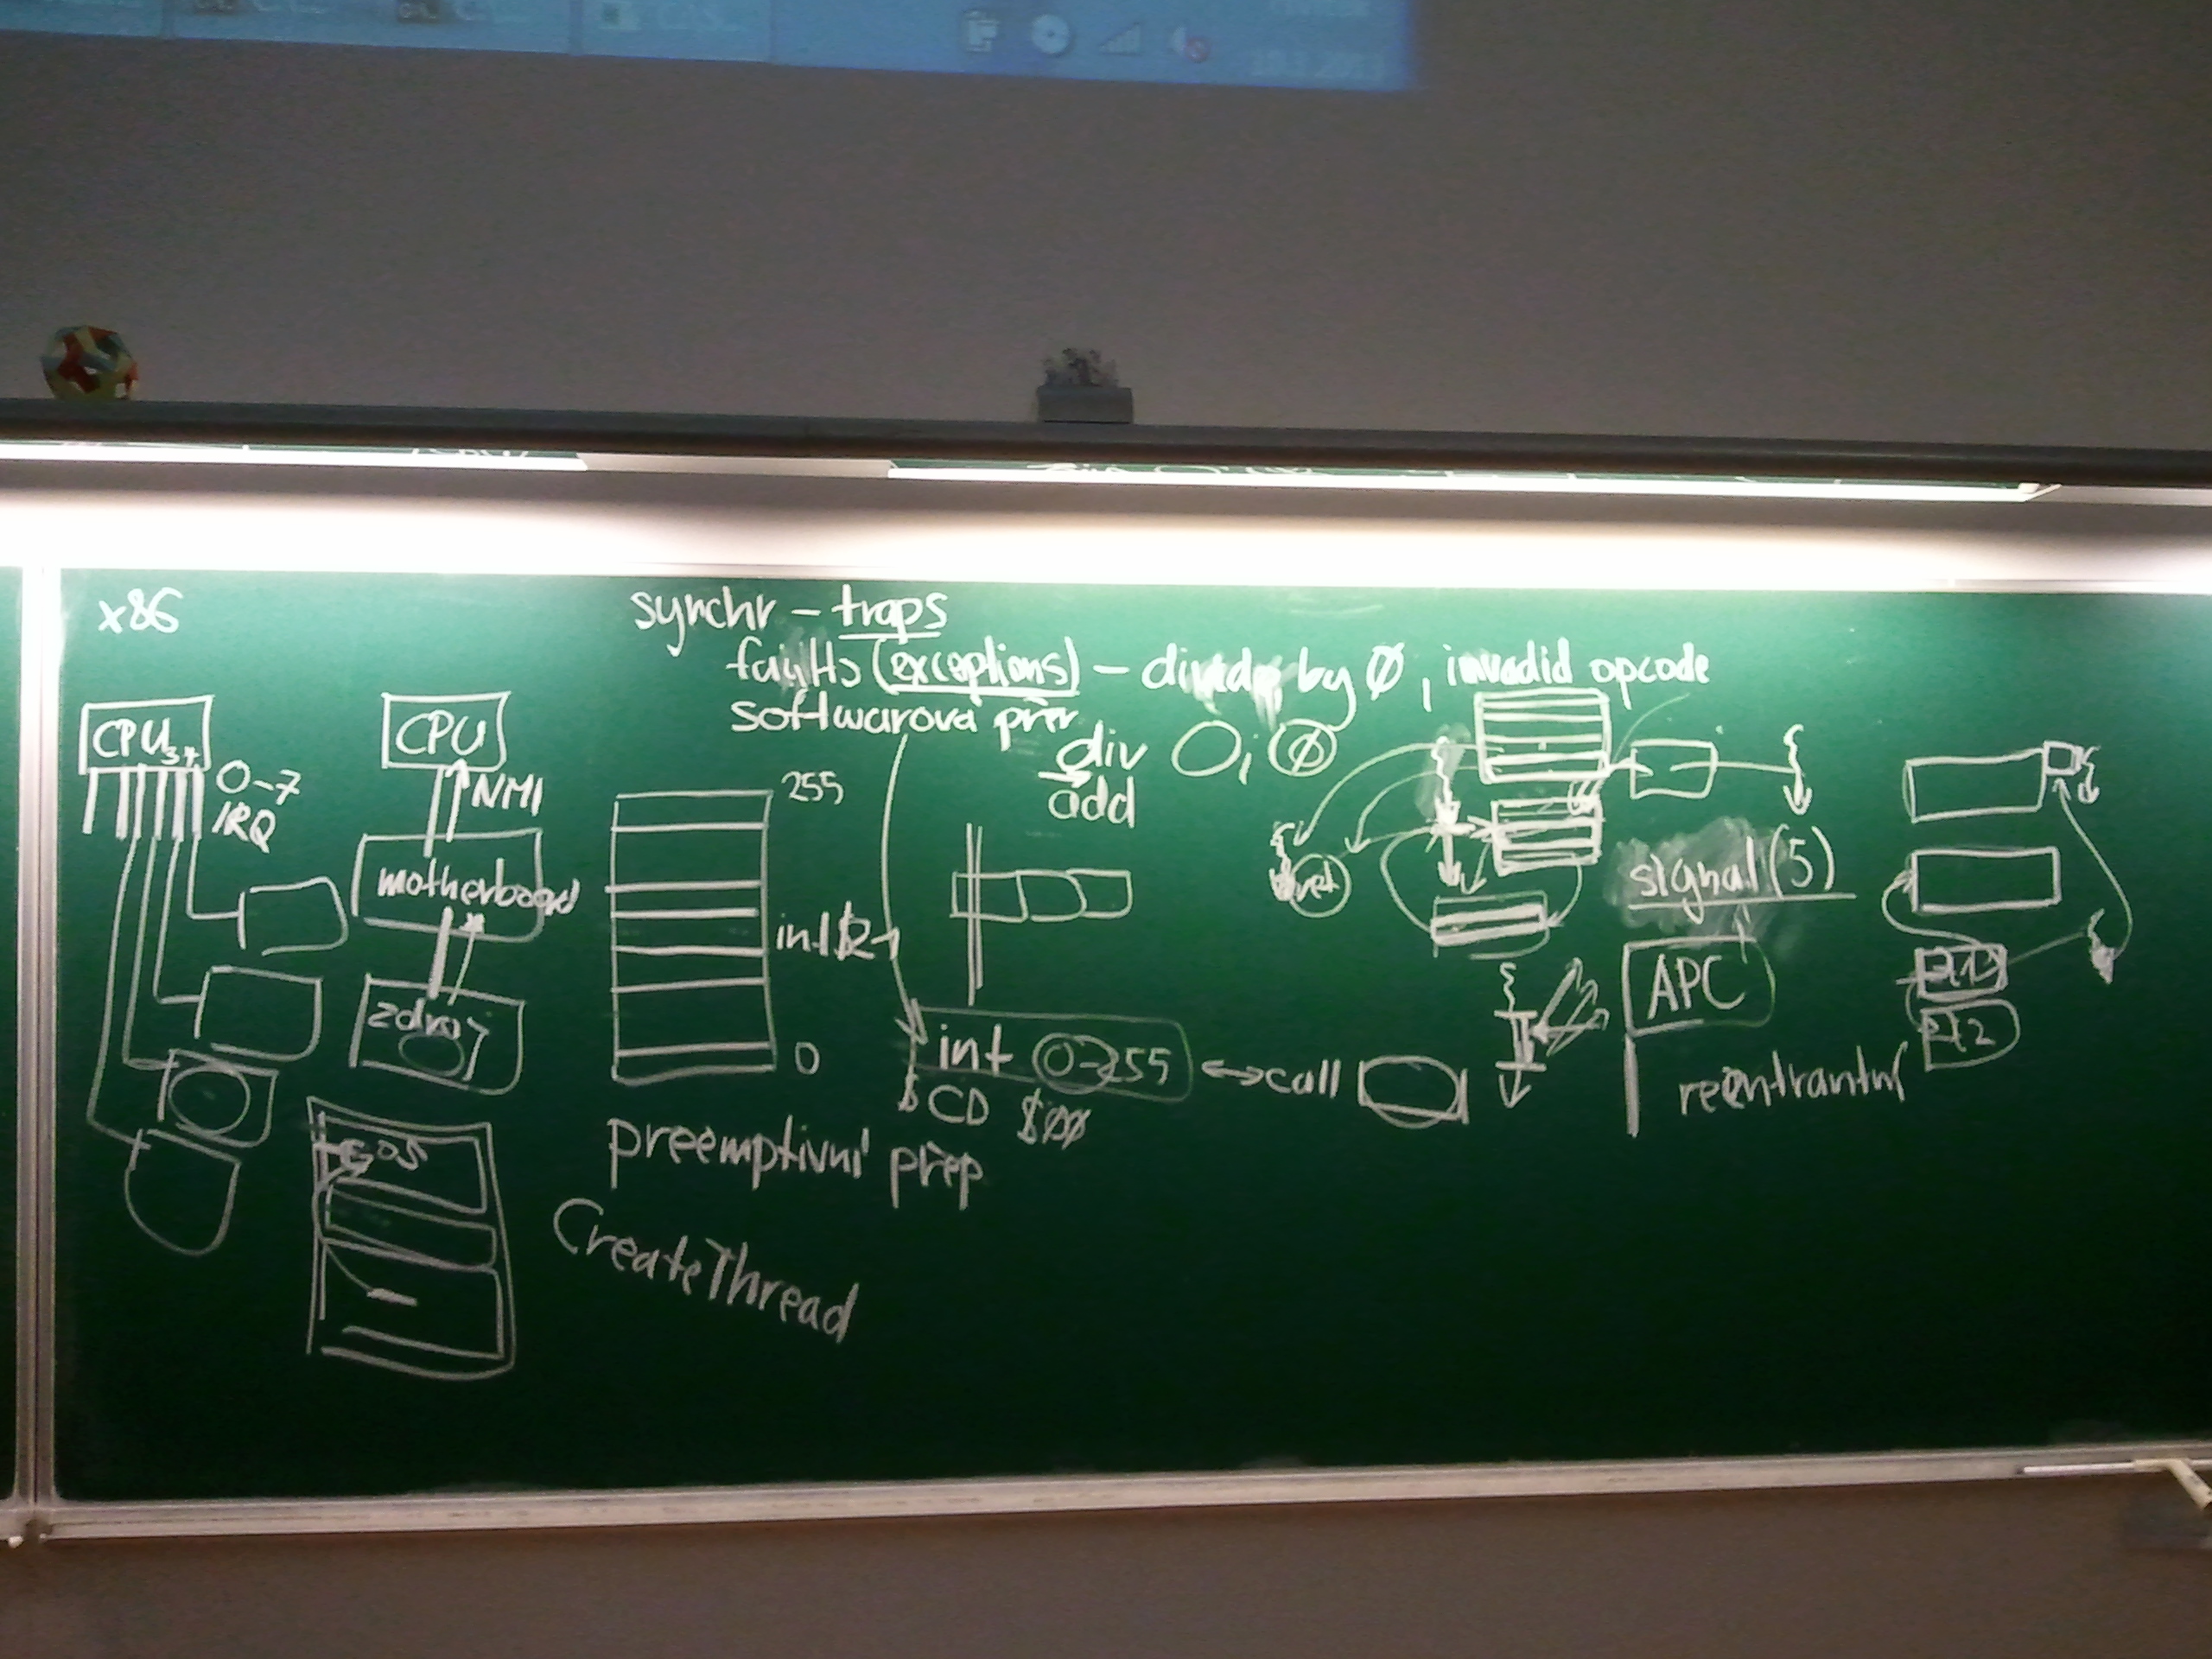 x86
synchr – traps
faults (exceptions) – divide by 0, invadid opcode
softwarová přer
CPU
0–7
IRQ
CPU
NMI
motherboard
zdroj
OS
255
0
div 0, 0
add
int 0–255 ↔ call
$CD $00
preemptivní přep
CreateThread
signal (5)
APC
reentrantní